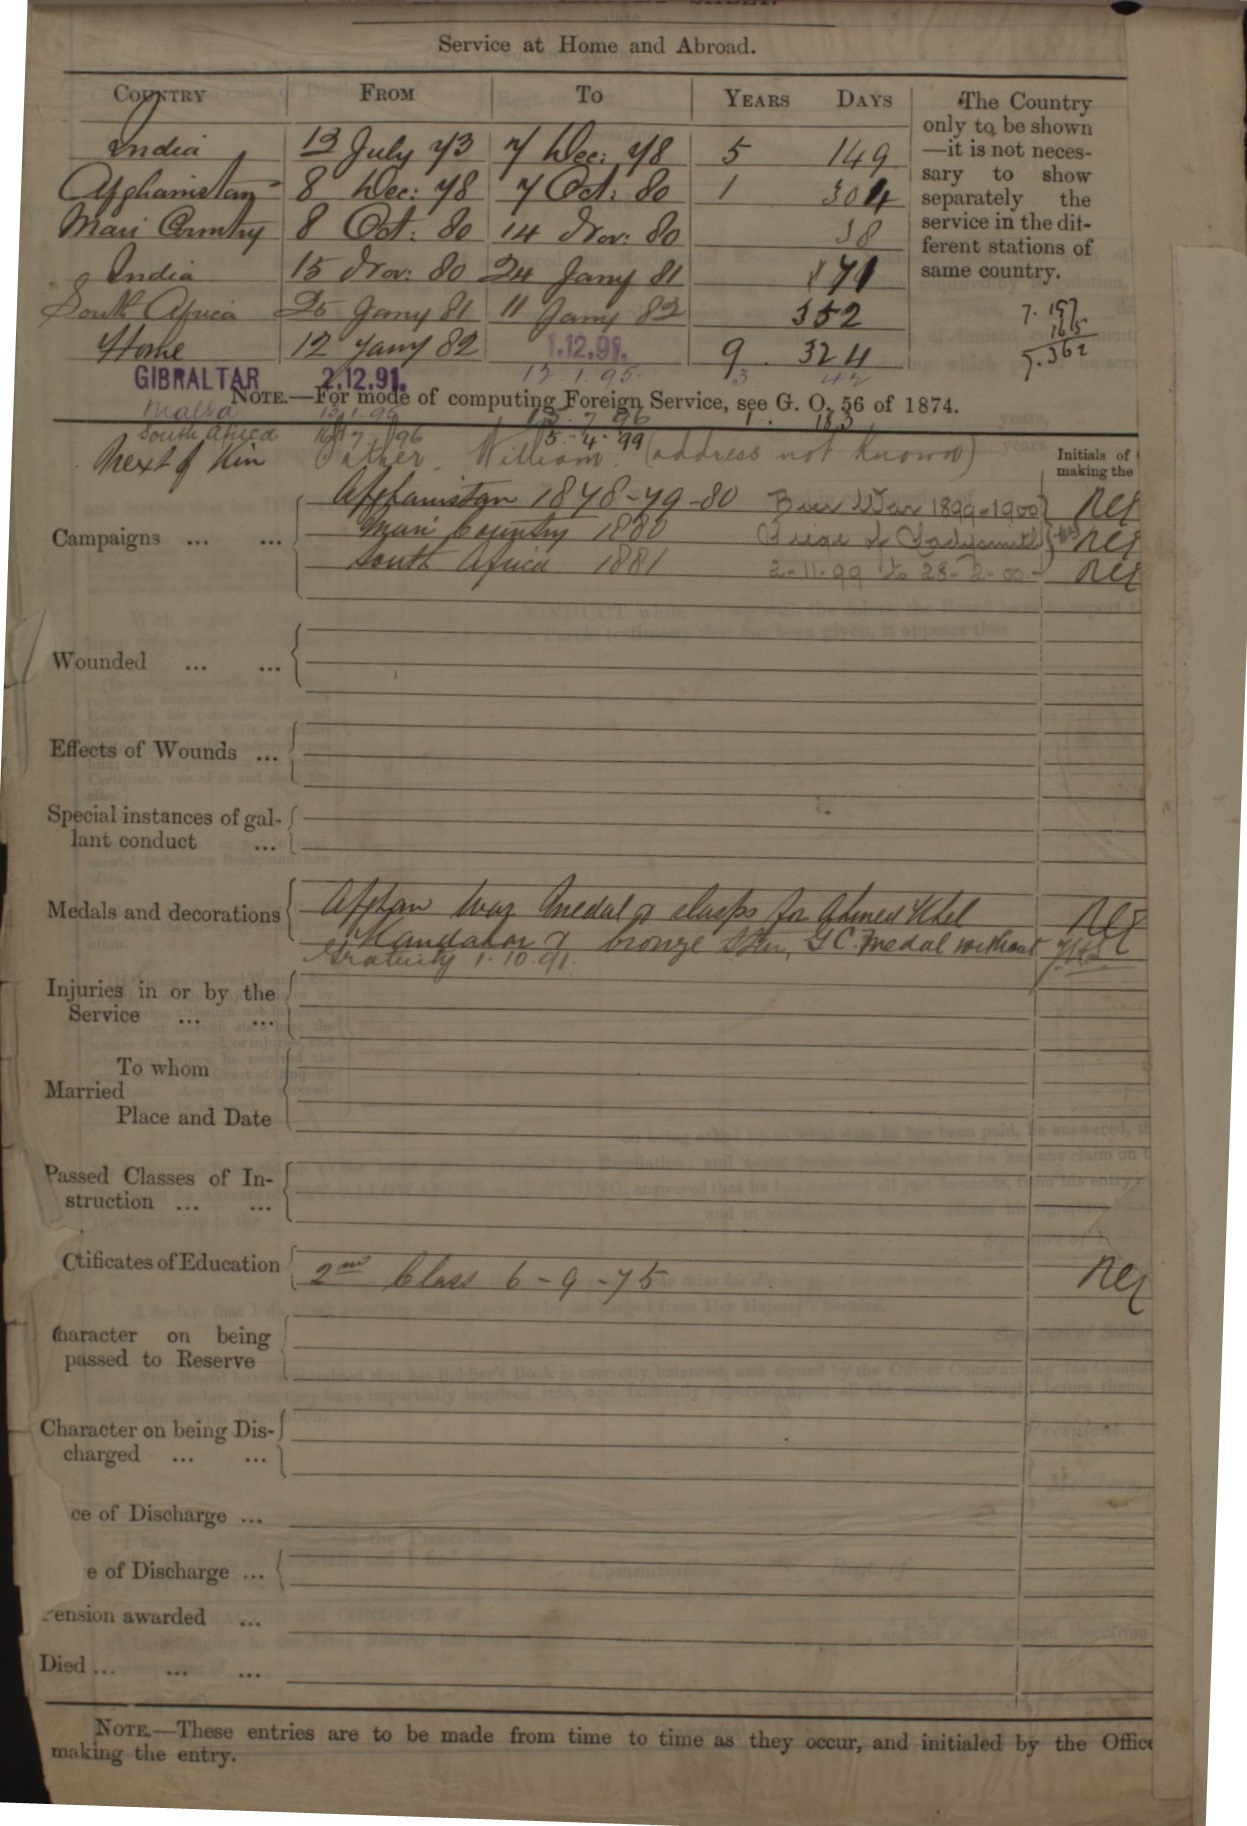 Service at Home and Abroad.
COUNTRY FROM TO YEARS DAYS
The Country only to be shown —it is not necessary to show separately the service in the different stations of same country.
India 13 July 73 7 Dec: 78 5 149
Afghanistan 8 Dec: 78 7 Oct: 80 1 304
Mari Country 8 Oct: 80 14 Nov: 80 38
India 15 Nov: 80 24 Jany 81 71
South Africa 25 Jany 81 11 Jany 82 352
Home 12 Jany 82 1.12.91. 9 324
7.197
165
7.362
GIBRALTAR 2.12.91. 12.1.95. 3 42
NOTE.—For mode of computing Foreign Service, see G. O. 56 of 1874.
Malta 13.1.95 15.7.96 1. 183
South Africa 16.7.96 5-4-99
Next of Kin Father William (address not known)
Initials of
making the
Campaigns ... ...
Afghanistan 1878-79-80 Boer War 1899-1900
Mari Country 1880 Siege of Ladysmith
South Africa 1881 2-11-99 to 28-2-00
Wounded ... ...
Effects of Wounds ...
Special instances of gal-
lant conduct ...
Medals and decorations
Afghan War Medal & clasps for Ahmed Khel
Kandahar & bronze Star, G.C. Medal without
Gratuity 1.10.91.
Injuries in or by the
Service ... ...
To whom
Married
Place and Date
Passed Classes of In-
struction ... ...
Ctificates of Education 2nd Class 6-9-75
haracter on being
passed to Reserve
Character on being Dis-
charged ... ...
ce of Discharge ...
e of Discharge ...
ension awarded ...
Died ... ... ...
NOTE.—These entries are to be made from time to time as they occur, and initialed by the Offic
making the entry.